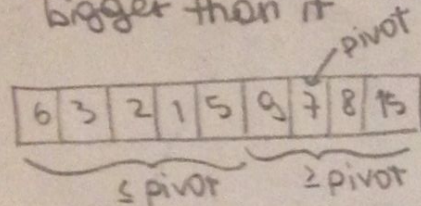 bigger than it
pivot
6 3 2 1 5 9 7 8 15
≤ pivot ≥ pivot